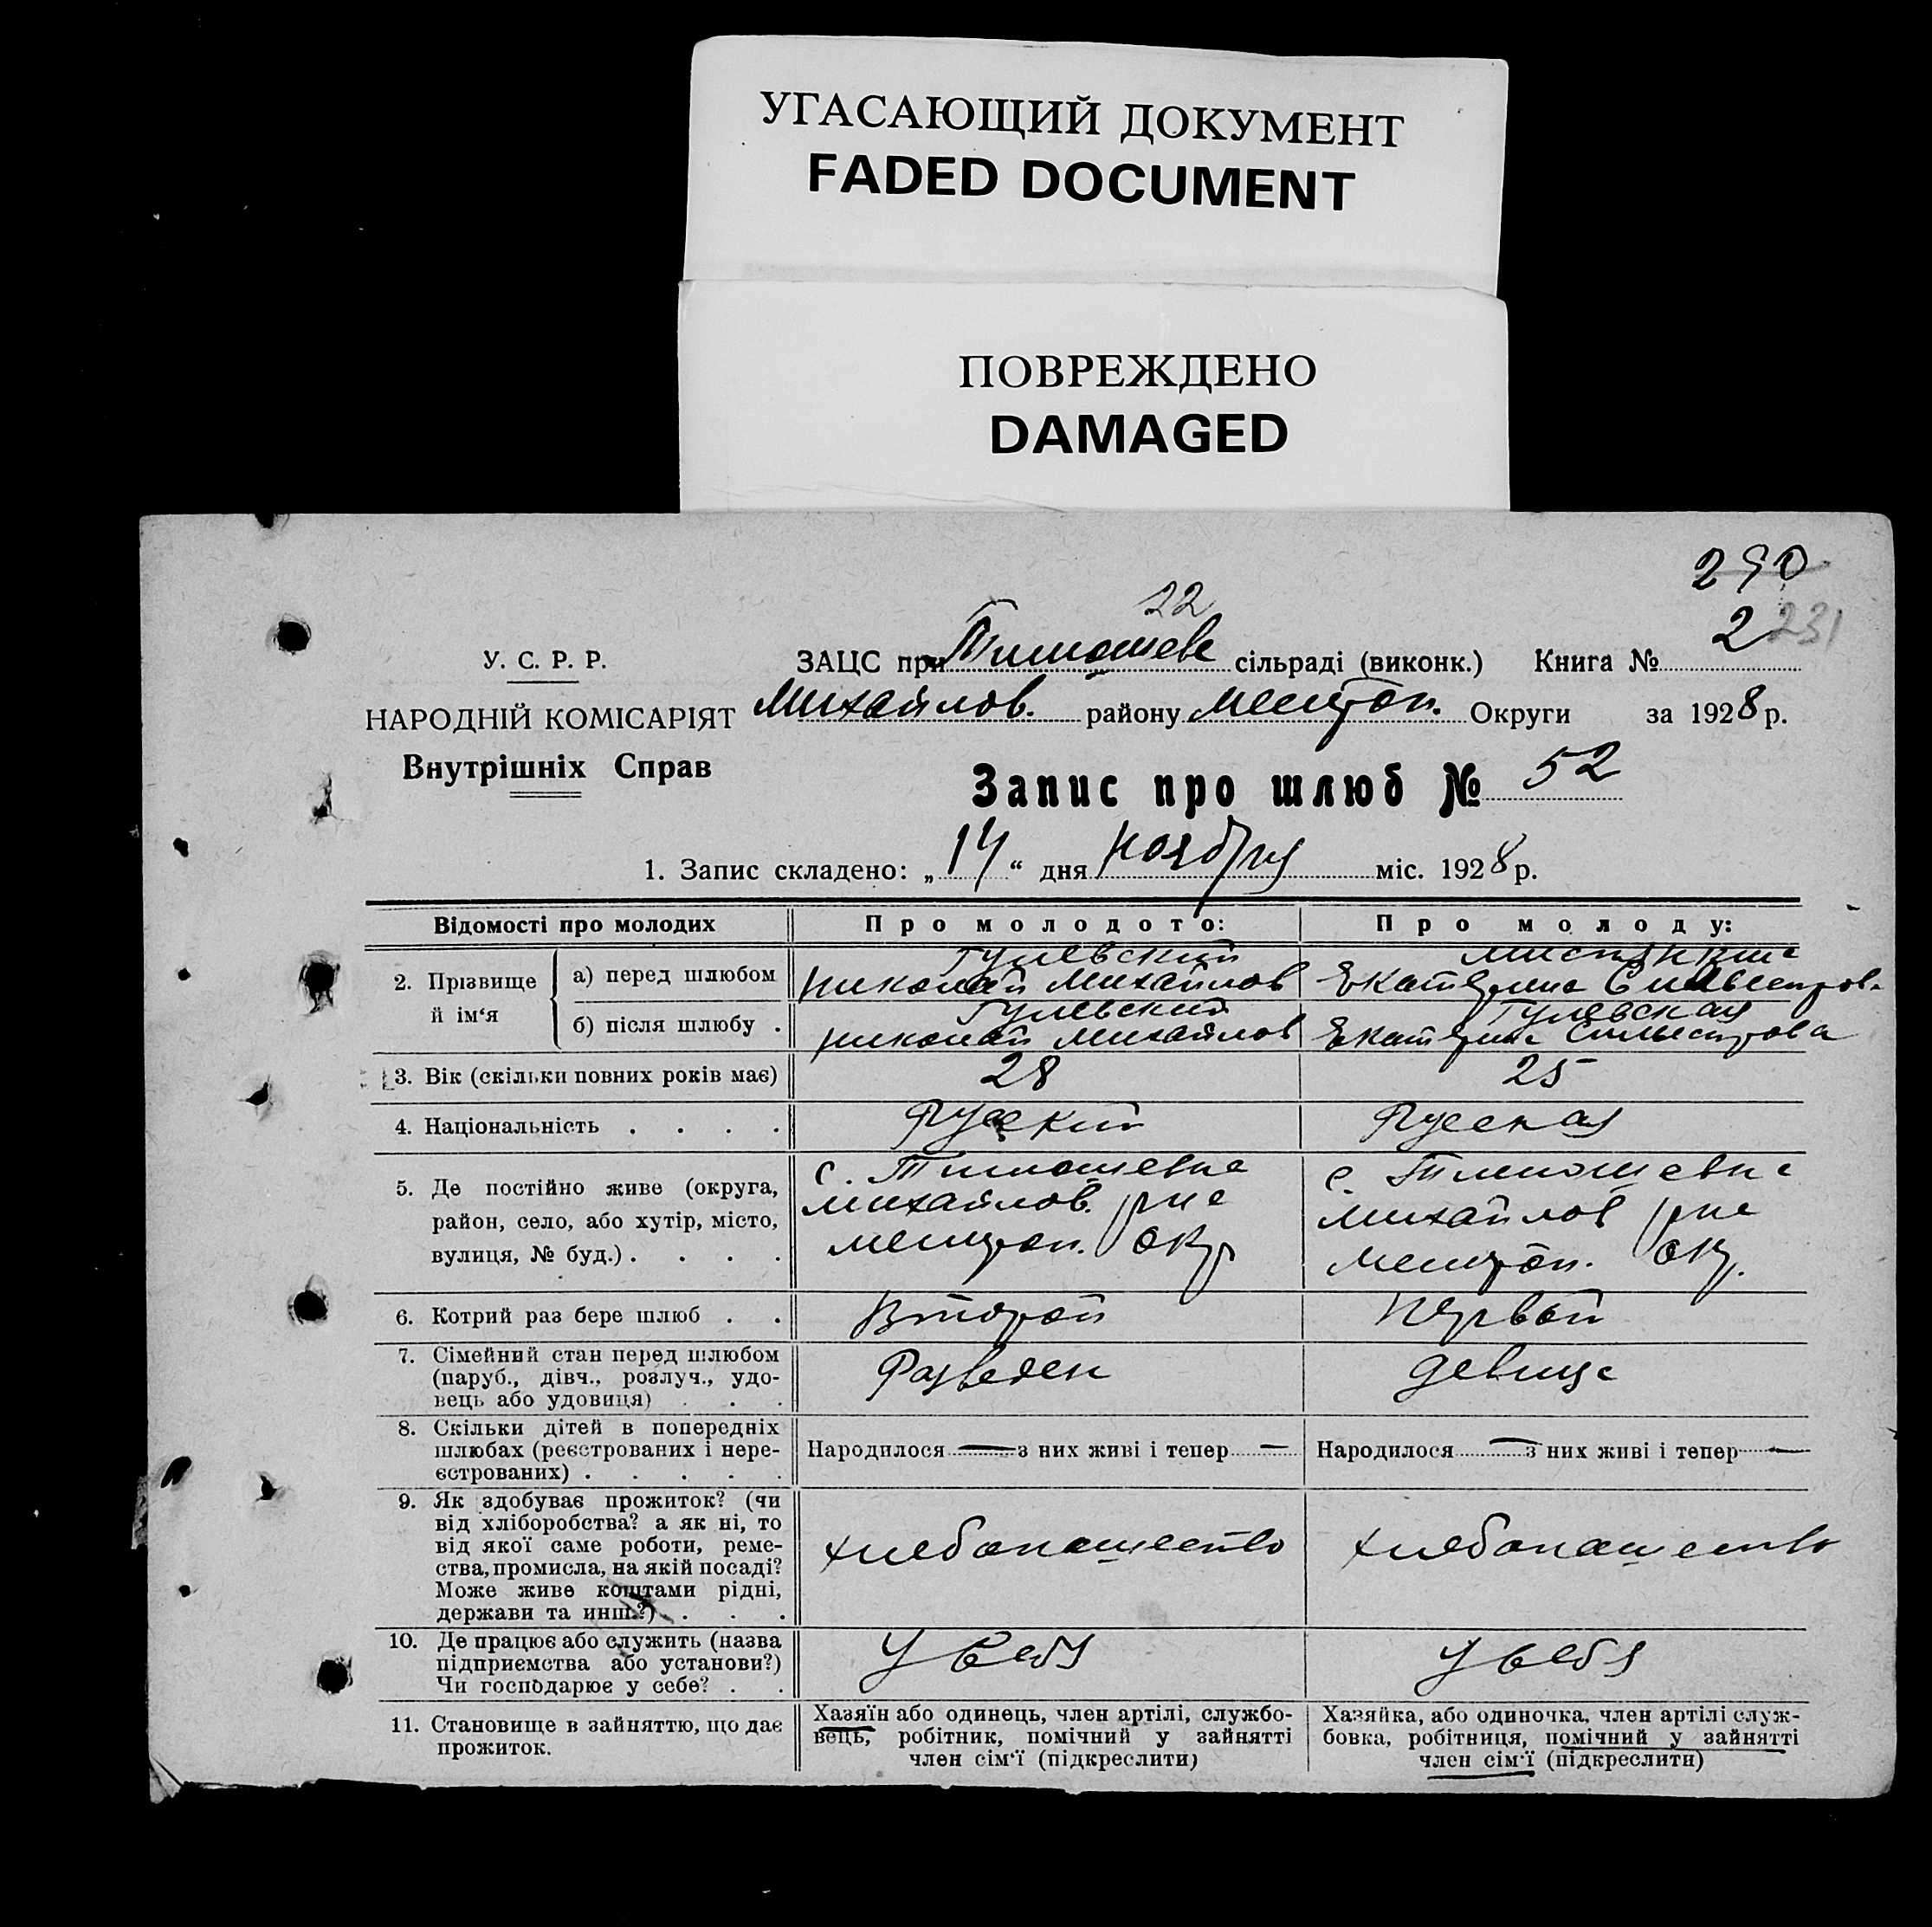 УГАСАЮЩИЙ ДОКУМЕНТ
FADED DOCUMENT
ПОВРЕЖДЕНО
DAMAGED
290
22
2 231
У. С. Р. Р.
НАРОДНІЙ КОМІСАРІЯТ
Внутрішніх Справ
ЗАЦС при Тимошевс сільраді (виконк.) Книга №
Михайлов. району Мелитоп. Округи за 1928 р.
Запис про шлюб № 52
1. Запис складено: „14“ дня ноября міс. 1928 р.
Відомості про молодих
Про молодого:
Про молоду:
2. Прізвище й ім‘я
а) перед шлюбом
Гулевский
Николай Михайлов
Екатерина Сильвестров.
б) після шлюбу .
Гулевский
Николай Михайлов
Гулевская
Екатерина Сильвестрова
3. Вік (скільки повних років має)
28
25
4. Національність . . . .
Русский
Русская
5. Де постійно живе (округа,
район, село, або хутір, місто,
вулиця, № буд.) . . . .
с. Тимошевка
Михайлов. р-на
Мелитоп. окр
с. Тимошевка
Михайлов р-на
Мелитоп. окр.
6. Котрий раз бере шлюб . .
Второй
Первой
7. Сімейний стан перед шлюбом
(паруб., дівч., розлуч., удо-
вець або удовиця) . . .
Разведен
девица
8. Скільки дітей в попередніх
шлюбах (реєстрованих і нере-
єстрованих) . . . . .
Народилося — з них живі і тепер —
Народилося — з них живі і тепер —
9. Як здобуває прожиток? (чи
від хліборобства? а як ні, то
від якої саме роботи, реме-
ства, промисла, на якій посаді?
Може живе коштами рідні,
держави та инш.?) . . .
хлебопашество
хлебопашество
10. Де працює або служить (назва
підприємства або установи?)
Чи господарює у себе? . .
У себя
У себя
11. Становище в зайняттю, що дає
прожиток.
Хазяїн або одинець, член артілі, службо-
вець, робітник, помічний у зайнятті
член сім‘ї (підкреслити)
Хазяйка, або одиночка, член артілі служ-
бовка, робітниця, помічний у зайнятті
член сім‘ї (підкреслити)